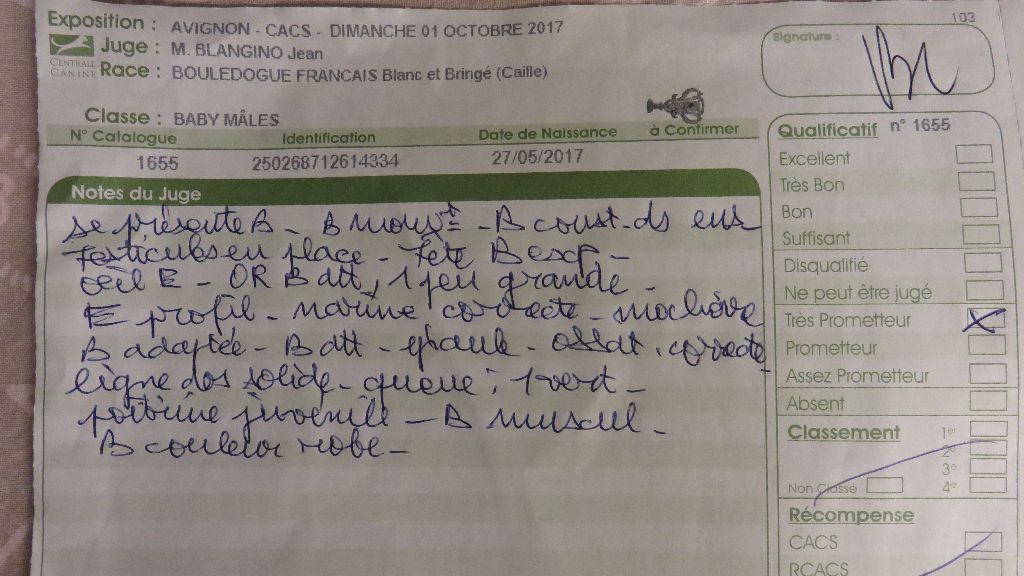 103
Exposition : AVIGNON - CACS - DIMANCHE 01 OCTOBRE 2017
Juge : M. BLANGINO Jean
CENTRALE CANINE
Race : BOULEDOGUE FRANCAIS Blanc et Bringé (Caille)
Signature :
Classe : BABY MÂLES
N° Catalogue Identification Date de Naissance à Confirmer
1655 250268712614334 27/05/2017
Notes du Juge
se présente B - B - B const. ds ens
testicules en place - Tête B exp -
œil E - OR B att, 1 peu grande -
E profil - narine correcte - machoire
B adaptée - B att - épaule - ossat. correcte
ligne dos solide - queue : 1 vert -
poitrine juvenile - B muscul -
B couleur robe -
Qualificatif n° 1655
Excellent
Très Bon
Bon
Suffisant
Disqualifié
Ne peut être jugé
Très Prometteur X
Prometteur
Assez Prometteur
Absent
Classement 1er
2e
3e
Non Classé 4e
Récompense
CACS
RCACS